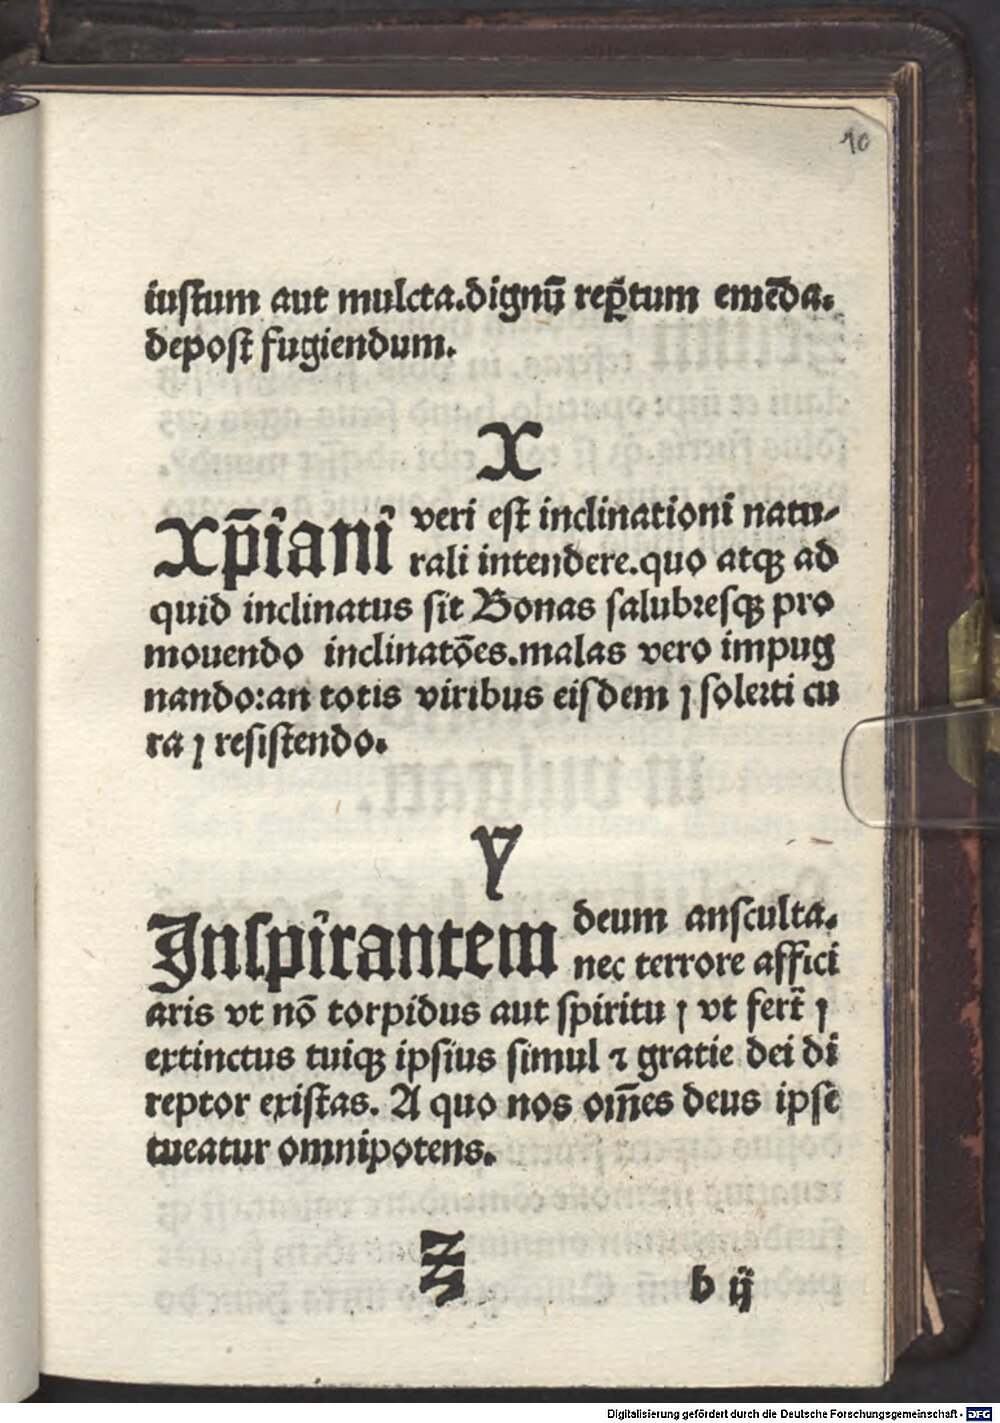 10
iuſtum aut mulcta.dignū rep̄tum emēda.
depoſt fugiendum.
X
Xp̄iani veri eſt inclinationi natu-
rali intendere.quo atqꝫ ad
quid inclinatus ſit Bonas ſalubꝛeſqꝫ pro
mouendo inclinatōes.malas vero impug
nando:an totis viribus eiſdem ⁊ ſolerti cu
ra ⁊ reſiſtendo.
Y
Inſpirantem deum anſculta.
nec terrore affici
aris vt nō torpidus aut ſpiritu ⁊ vt fert̄ ⁊
extinctus tuiqꝫ ipſius ſimul ⁊ gratie dei di
reptor exiſtas. A quo nos om̄es deus ipſe
tueatur omnipotens.
Z
b ij
Digitalisierung gefördert durch die Deutsche Forschungsgemeinschaft - DFG